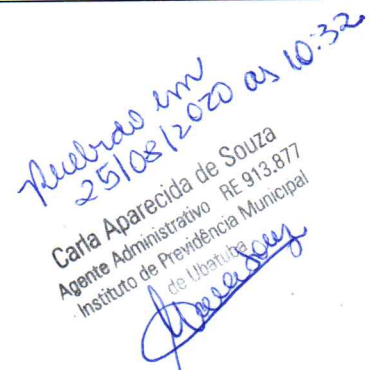 Recebido em
25/08/2020 as 10:32
Carla Aparecida de Souza
Agente Administrativo RE 913.877
Instituto de Previdência Municipal
de Ubatuba